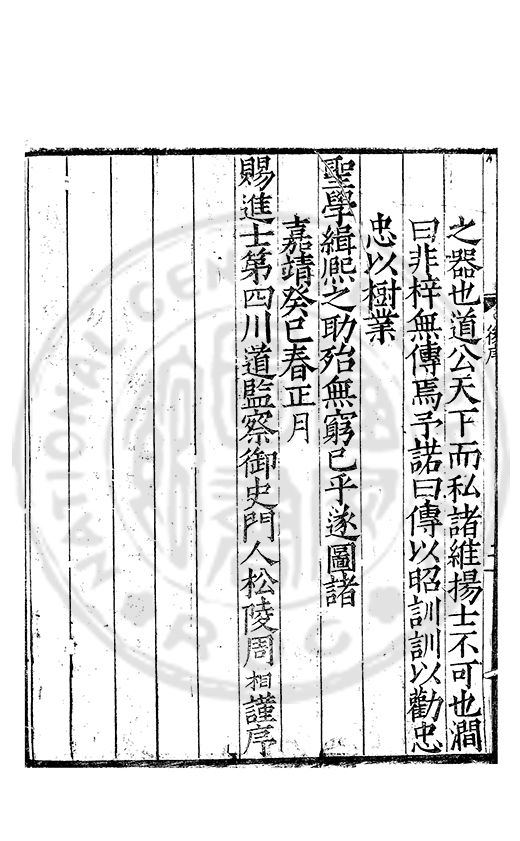 之器也道公天下而私諸維揚士不可也澗
曰非梓無傳焉予諾曰傳以昭訓訓以勸忠
忠以樹業
聖學緝熈之助殆無窮已乎遂圖諸
嘉靖癸巳春正月
賜進士第四川道監察御史門人松陵周相謹序
後序